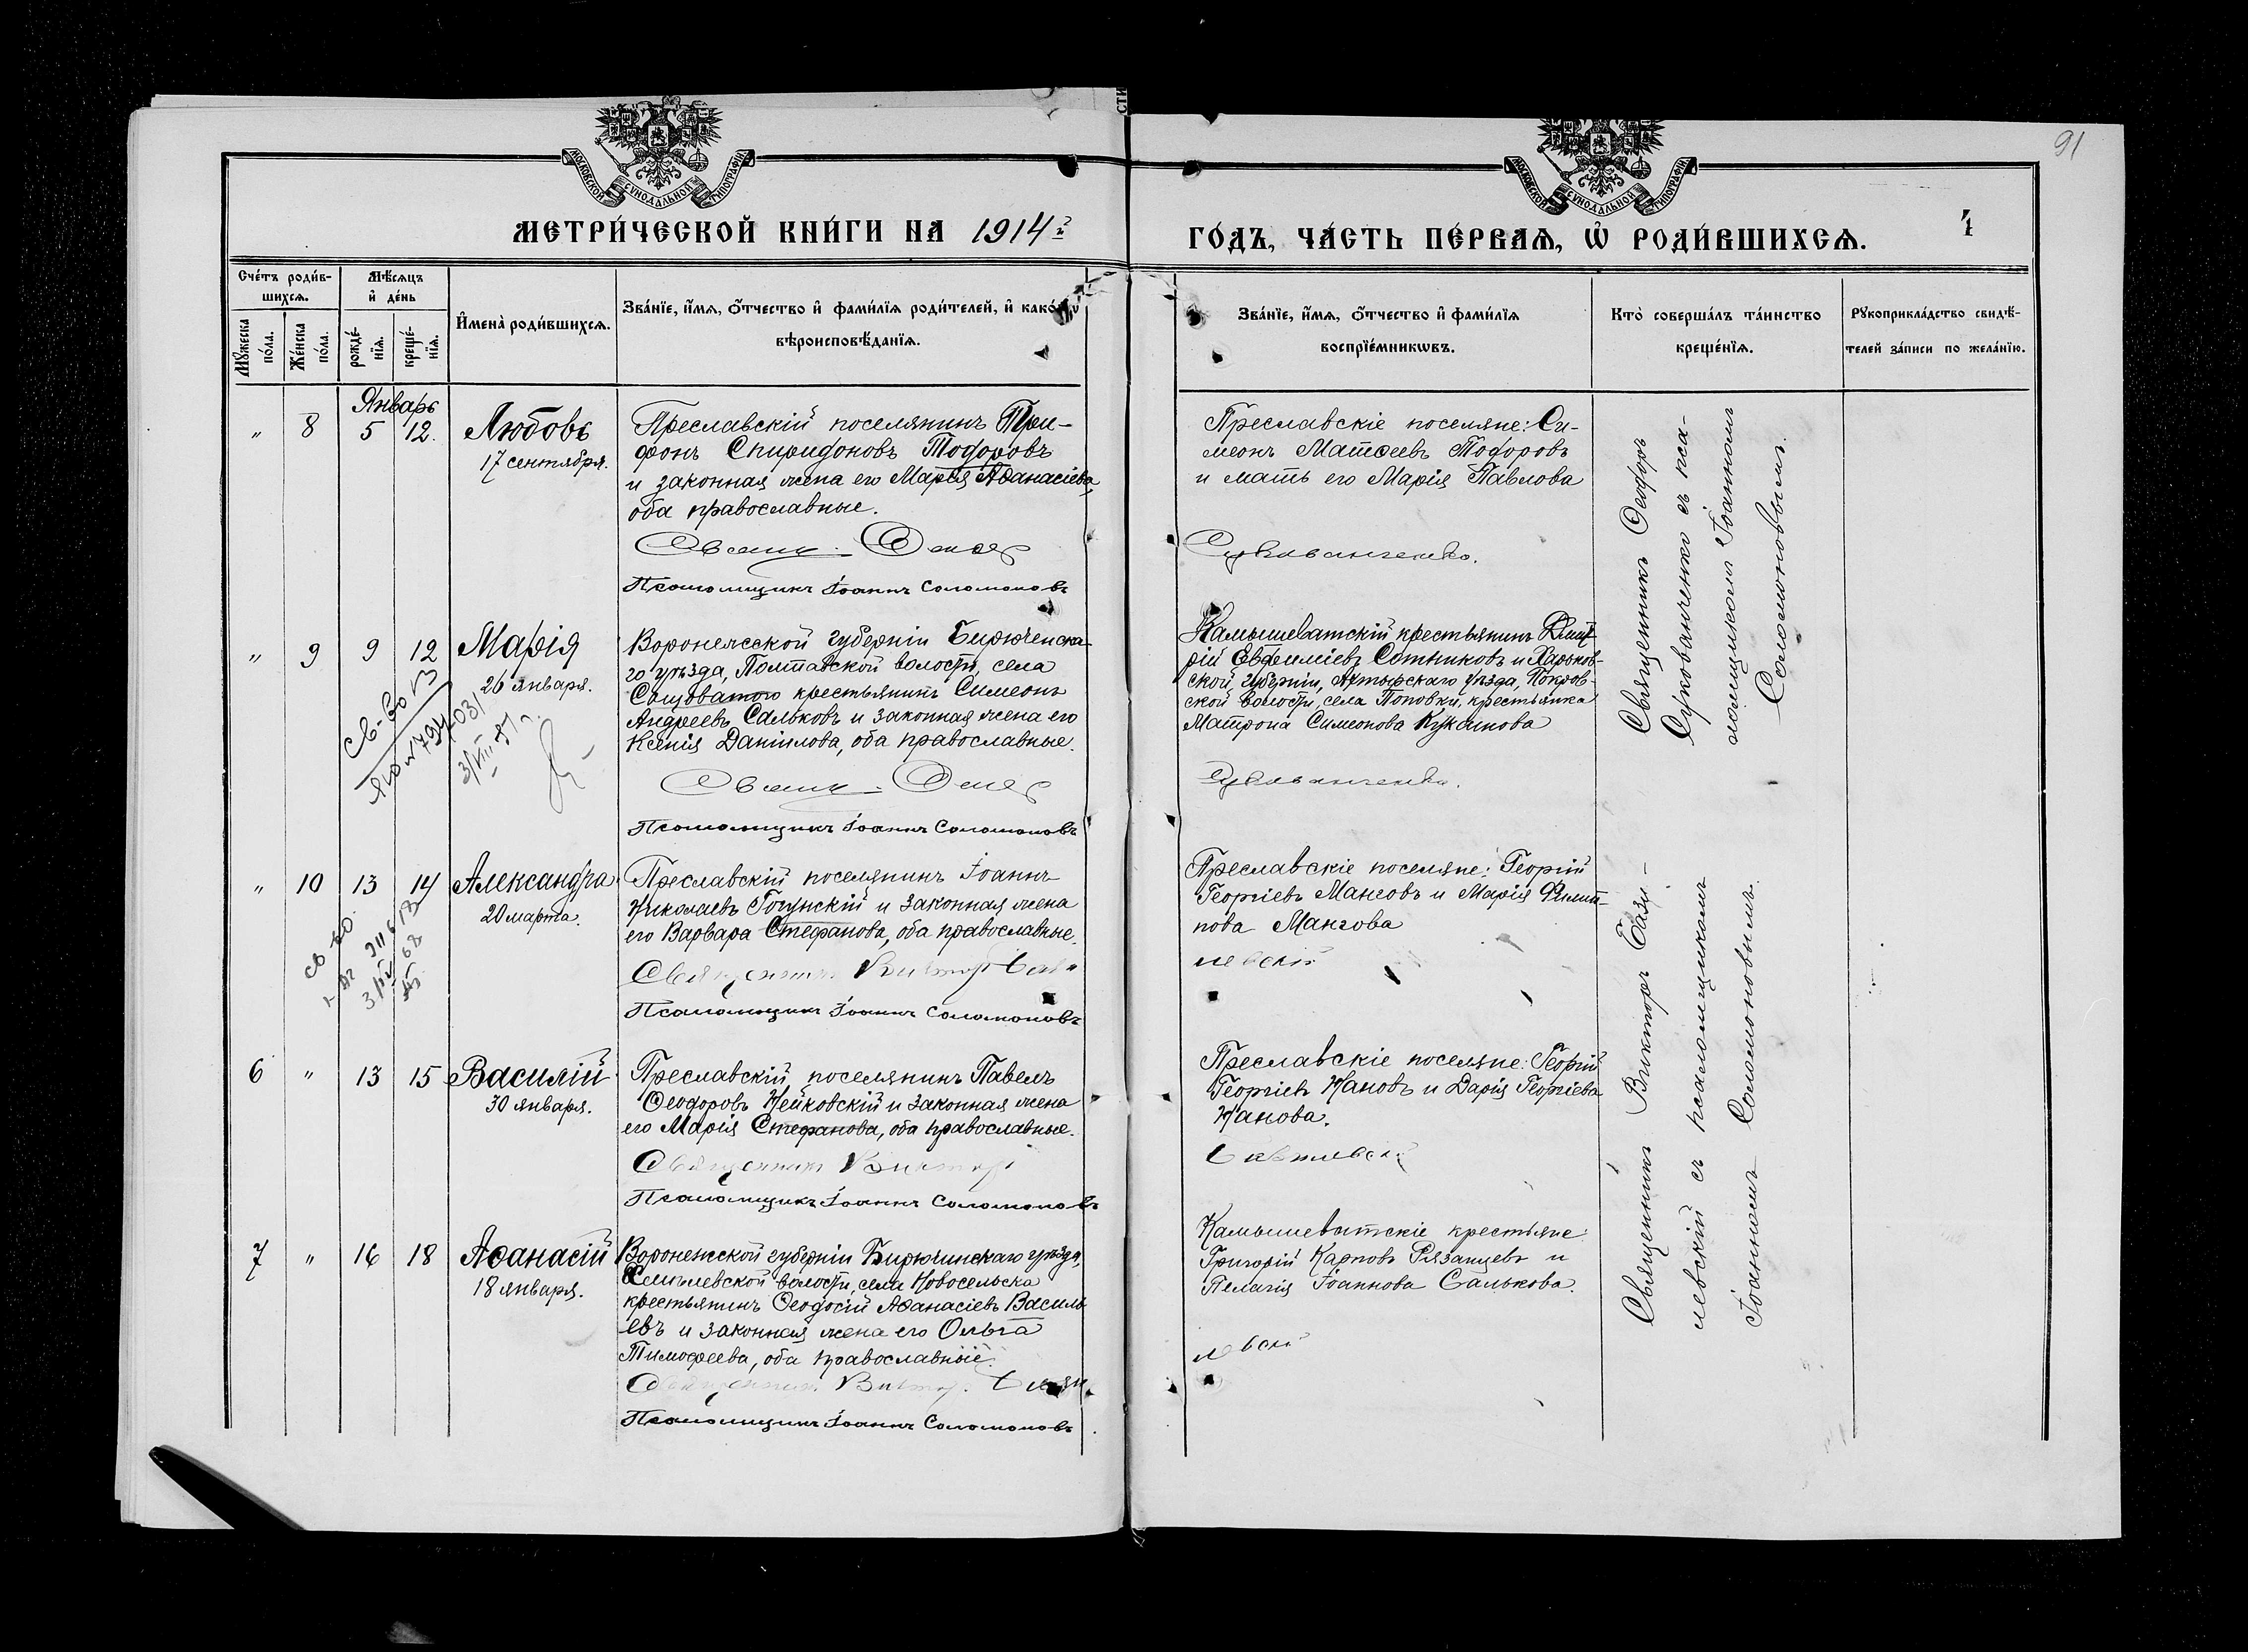 91
МОСКОВСКОЙ СУНОДАЛЬНОЙ ТИПОГРАФІИ
МОСКОВСКОЙ СУНОДАЛЬНОЙ ТИПОГРАФІИ
МЕТРИ́ЧЕСКОЙ КНИ́ГИ НА 1914й
ГО́ДЪ, ЧА́СТЬ ПЕ́РВАѦ, Ѡ҆ РОДИ́ВШИХСѦ.
4
Сче́тъ роди́в-
шихсѧ.
Мѣ́сѧцъ
и҆ де́нь
Мꙋ́жеска
по́ла.
Же́нска
по́ла.
рожде́-
нїѧ.
креще́-
нїѧ.
И҆мена̀ роди́вшихсѧ.
Зва́нїе, и҆́мѧ, ѻ҆́тчество и҆ фами́лїѧ роди́телей, и҆
вѣроисповѣ́данїѧ.
Зва́нїе, и҆́мѧ, ѻ҆́тчество и҆ фами́лїѧ
воспрїе́мникѡвъ.
Кто̀ соверша́лъ та́инство
креще́нїѧ.
Рꙋкоприкла́дство свидѣ́-
телей за́писи по жела́нїю.
Январь
" 8 5 12. Любовь
17 сентября.
Преславскій поселянинъ Три-
фонъ Спиридоновъ Тодоровъ
и законная жена его Марія Аѳанасіева,
оба православные.
Псаломщикъ Іоаннъ Соломоновъ
Преславскіе поселяне: Си-
меонъ Матѳеевъ Тодоровъ
и мать его Марія Павлова
Сукованченко.
Священникъ Ѳеодоръ
Сукованченко съ пса-
ломщикомъ Іоанномъ
Соломоновымъ.
" 9 9 12 Марія
26 января.
Св-во
Воронежской губерніи Бирюченска-
го уѣзда, Полтавской волости, села
крестьянинъ Симеонъ
Андреевъ Сальковъ и законная жена его
Ксенія Даніилова, оба православные.
Псаломщикъ Іоаннъ Соломоновъ
Камышеватскій крестьянинъ Дмит-
рій Евѳиміевъ Сотниковъ и Харьков-
ской губерніи, Ахтырскаго уѣзда, Покров-
ской волости, села Поповки, крестьянка
Матрона Симеонова
Сукованченко.
" 10 13 14 Александра
20 марта.
Преславскій поселянинъ Іоаннъ
Николаевъ Гогунскій и законная жена
его Варвара Стефанова, оба православные.
Священникъ Викторъ Бази-
Псаломщикъ Іоаннъ Соломоновъ
Преславскіе поселяне: Георгій
Георгіевъ Манговъ и Марія Филип-
пова Мангова
левскій
Священникъ Викторъ Бази-
левскій съ псаломщикомъ
Іоанномъ Соломоновымъ.
6 " 13 15 Василій
30 января.
Преславскій поселянинъ Павелъ
Ѳеодоровъ Нейковскій и законная жена
его Марія Стефанова, оба православные.
Священникъ Викторъ
Псаломщикъ Іоаннъ Соломоновъ
Преславскіе поселяне: Георгій
Георгіевъ Жановъ и Дарія Георгіева
Жанова.
Базилевскій
7 " 16 18 Аѳанасій
18 января.
Воронежской губерніи Бирючинскаго уѣзда,
волости, села Новосельска
крестьянинъ Ѳеодосій Аѳанасіевъ Василь-
евъ и законная жена его Ольга
Тимофеева, оба православные.
Священникъ Викторъ Бази-
Псаломщикъ Іоаннъ Соломоновъ
Камышеватскіе крестьяне:
Григорій Карповъ Рязанцевъ и
Пелагія Іоаннова Салькова.
левскій